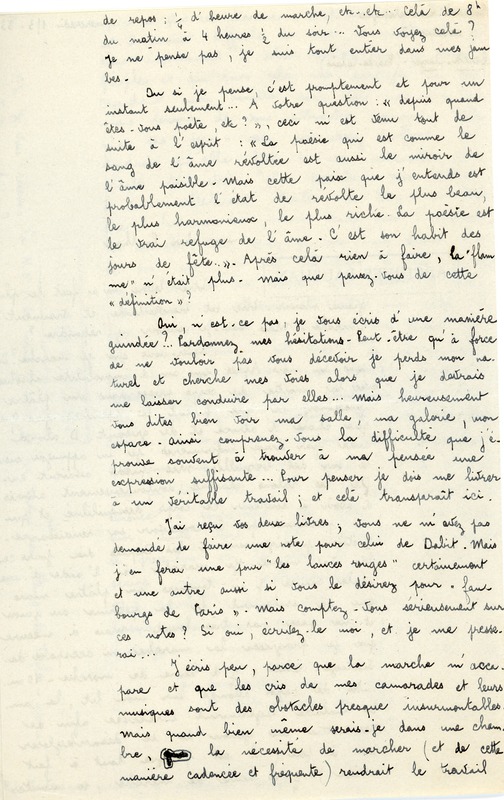 de repos : ¼ d'heure de marche, etc.. etc.. Celà de 8h
du matin à 4 heures ½ du soir... Vous voyez celà ?
Je ne pense pas, je suis tout entier dans mes jam
bes.
Ou si je pense, c'est promptement et pour un
instant seulement... A votre question : « depuis quand
êtes-vous poète, etc ? », ceci m'est venu tout de
suite à l'esprit : « La poésie qui est comme le
sang de l'âme révoltée est aussi le miroir de
l'âme paisible. Mais cette paix que j'entends est
probablement l'état de révolte le plus beau,
le plus harmonieux, le plus riche. La poésie est
le vrai refuge de l'âme. C'est son habit des
jours de fête.. ». Après celà rien à faire, la "flam
me" n'était plus. Mais que pensez-vous de cette
« définition » ?
Oui, n'est-ce pas, je vous écris d'une manière
guindée ?. Pardonnez mes hésitations. Peut-être qu'à force
de ne vouloir pas vous décevoir je perds mon na-
turel et cherche mes voies alors que je devrais
me laisser conduire par elles... Mais heureusement
vous dites bien voir ma salle, ma galerie, mon
espace. Ainsi comprenez-vous la difficulté que j'é-
prouve souvent à trouver à ma pensée une
expression suffisante... Pour penser je dois me livrer
à un véritable travail ; et celà transparaît ici.
J'ai reçu vos deux livres ; vous ne m'avez pas
demandé de faire une note pour celui de Dalit. Mais
j'en ferai une pour "les lances rouges" certainement
et une autre aussi si vous le désirez pour « fau
bourgs de Paris ». Mais comptez-vous serieusement sur
ces notes ? Si oui, écrivez-le moi, et je me presse-
rai...
J'écris peu, parce que la marche m'acca
pare et que les cris de mes camarades et leurs
musiques sont des obstacles presque insurmontables.
Mais quand bien même serais-je dans une cham
bre, la nécessité de marcher (et de cette
manière cadencée et fréquente) rendrait le travail